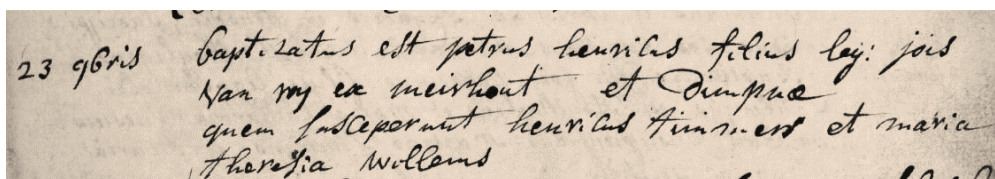 23 9bris baptizatus est petrus henricus filius leg: jois
van roy ex meirhout et Dimpnæ
quem susceperunt henricus timmers et maria
theresia willems